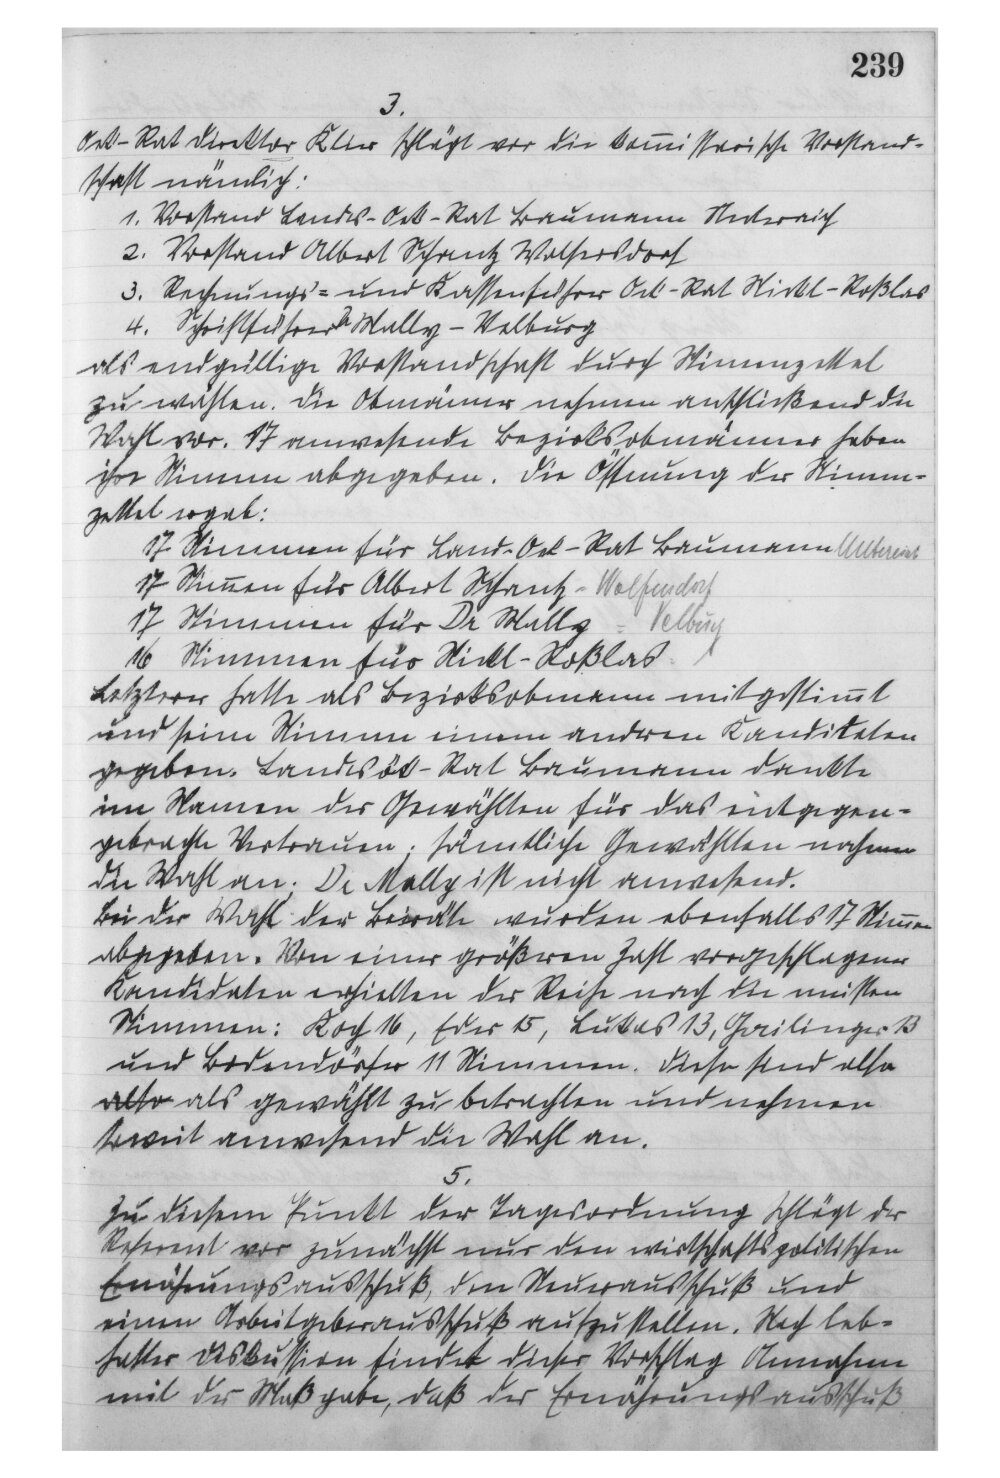 239
3.
Oek-Rat Direktor Klier schlägt vor die kom̅issarische Vorstand-
schaft nämlich:
1. Vorstand Landes-Oek-Rat Baumann
2. Vorstand Albert Schantz Wolfersdorf
3. Rechnungs= und Kassenführer Oek-Rat Nickl-Roßlas
4. Schriftführer Dr Mally – Velburg
als endgültige Vorstandschaft durch Stimmzettel
zu wählen. Die Obmänner nehmen anschließend die
Wahl vor. 17 anwesende Bezirksobmänner haben
ihre Stimmen abgegeben. Die Öffnung der Stimm-
zettel ergab:
17 Stimmen für Land-Oek-Rat Baumann
17 Stim̅en für Albert Schantz - Wolfersdorf
17 Stimmen für Dr Mally - Velburg
16 Stimmen für Nickl-Roßlas.
Letzterer hatte als Bezirksobmann mitgestim̅t
und seine Stimme einem anderen Kanditaten
gegeben. Landesök-Rat Baumann dankte
im Namen der Gewählten für das entgegen-
gebrachte Vertrauen; sämtliche Gewählten nahmen
die Wahl an; Dr Mally ist nicht anwesend.
Bei der Wahl der Beiräte wurden ebenfalls 17 Stim̅en
abgegeben. Von einer größeren Zahl vorgeschlagener
Kandidaten erhielten der Reihe nach die meisten
Stimmen: Koch 16, Eder 15, Lukas 13, Gailinger 13
und Bodendörfer 11 Stimmen. Diese sind also
also als gewählt zu betrachten und nehmen
soweit anwesend die Wahl an.
5.
Zu diesem Punkt der Tagesordnung schlägt der
Referent vor zunächst nur den wirtschaftspolitischen
Ernährungsausschuß, den Steuerausschuß und
einen Arbeitgeberausschuß aufzustellen. Nach leb-
hafter Diskussion findet dieser Vorschlag Annahme
mit der Maßgabe, daß der Ernährungsausschuß